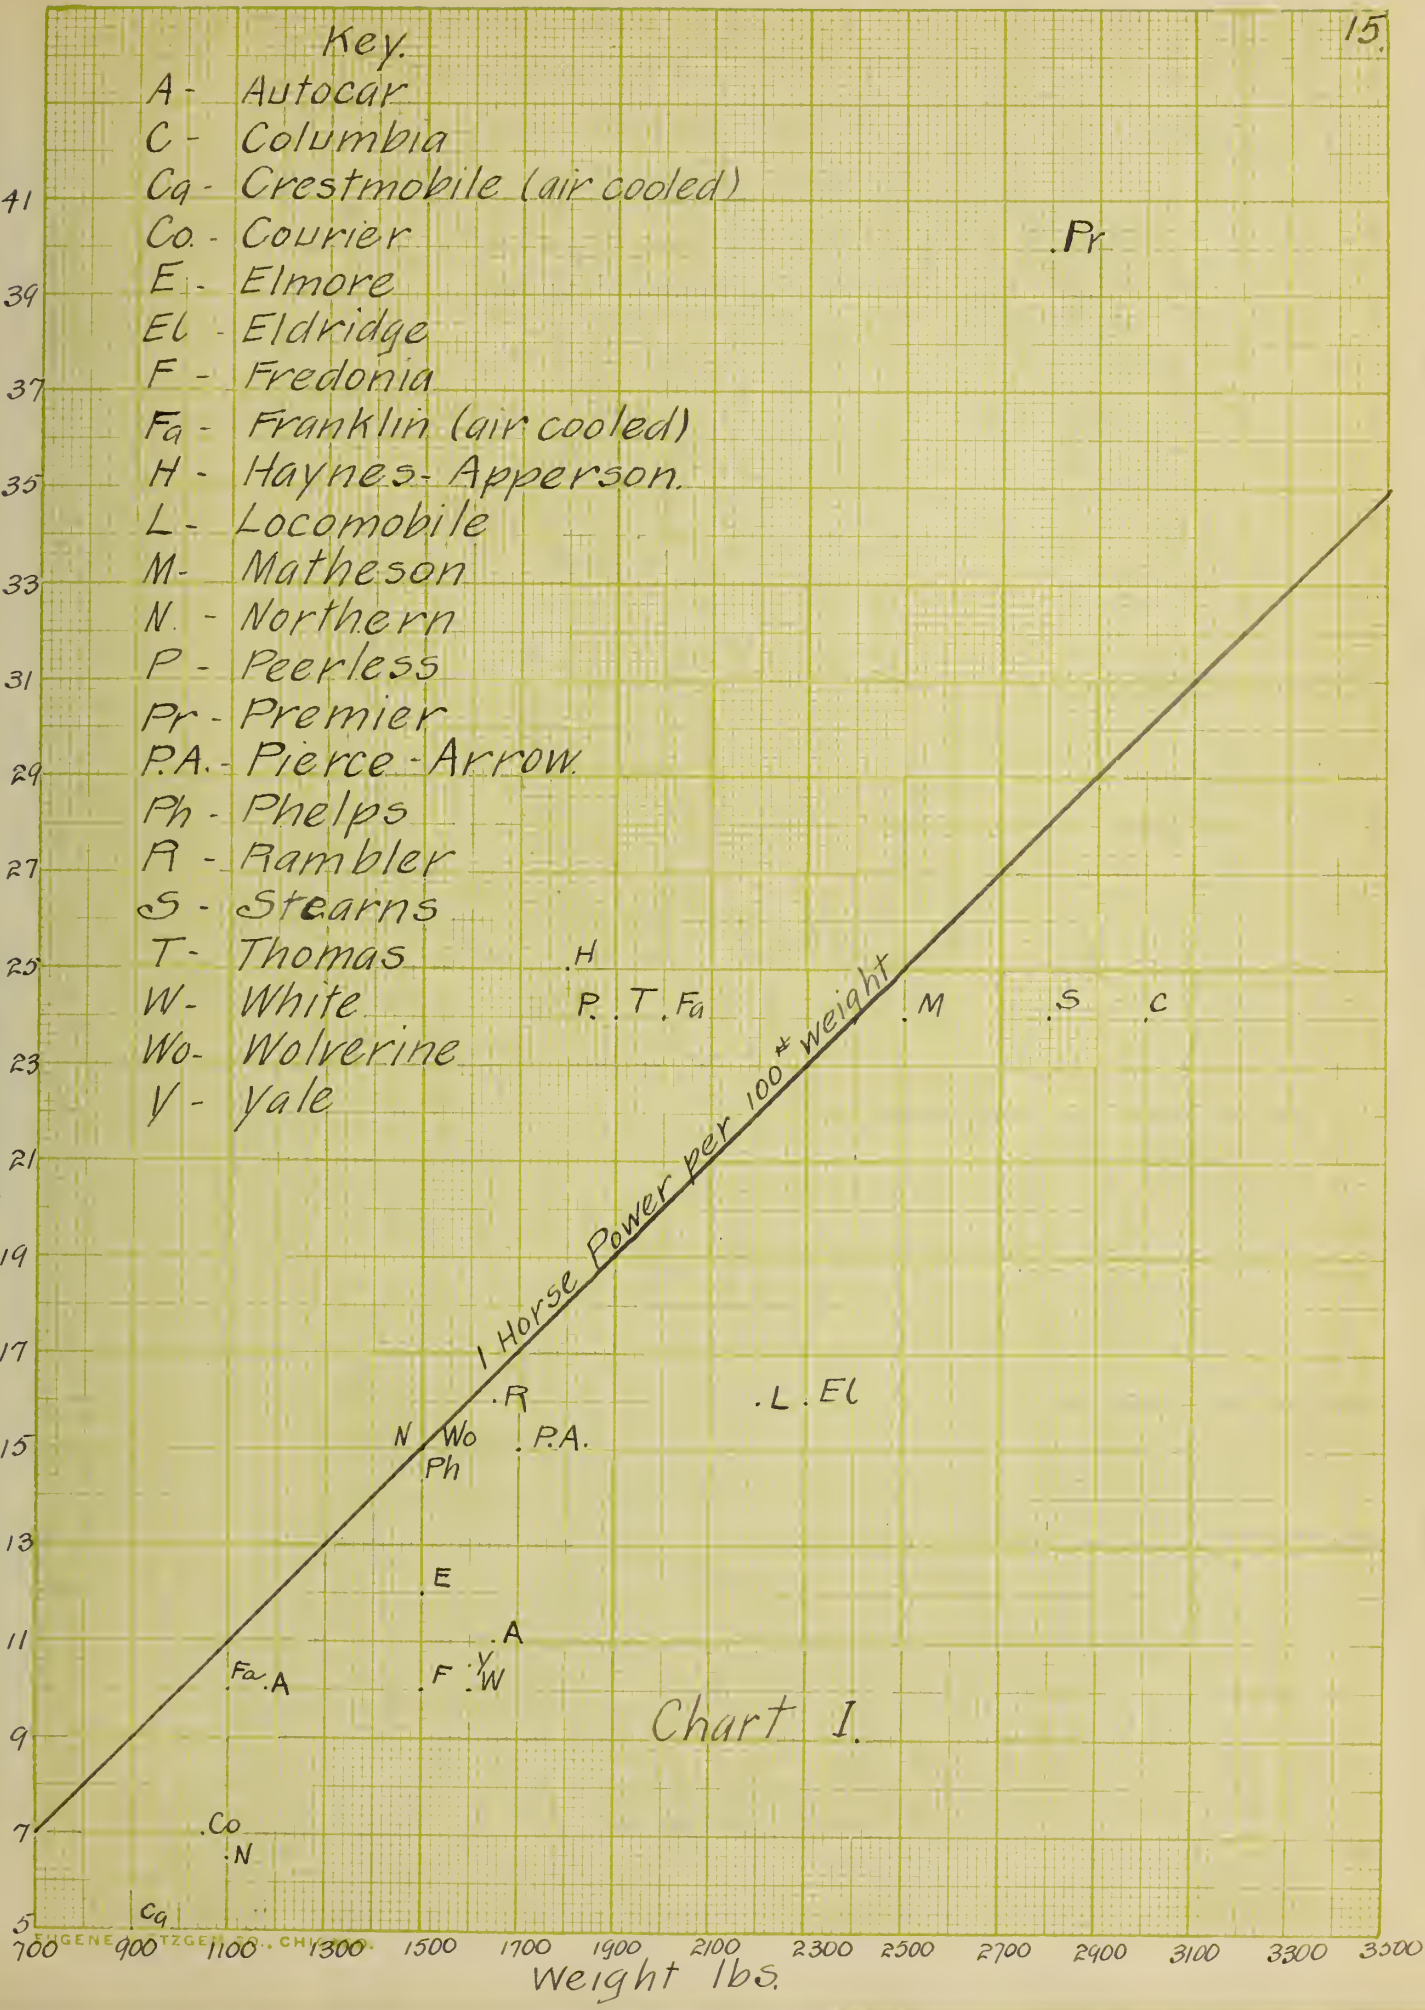 15.
Key.
A - Autocar
C - Columbia
Ca - Crestmobile (air cooled)
Co. - Courier
E - Elmore
El - Eldridge
F - Fredonia
Fa - Franklin (air cooled)
H - Haynes-Apperson.
L - Locomobile
M - Matheson
N. - Northern
P - Peerless
Pr - Premier
P.A. - Pierce-Arrow.
Ph - Phelps
R - Rambler
S - Stearns
T - Thomas
W - White
Wo - Wolverine
Y - Yale
41
39
37
35
33
31
29
27
25
23
21
19
17
15
13
11
9
7
5
.Pr
.H
P. .T .Fa
.M
.S
.C
1 Horse Power per 100# weight
.R
.L .El
N Wo
P.A.
Ph
E
.A
Y
Fa .A
F
W
Chart I.
.Co
.N
Ca
700 900 1100 1300 1500 1700 1900 2100 2300 2500 2700 2900 3100 3300 3500
Weight lbs.